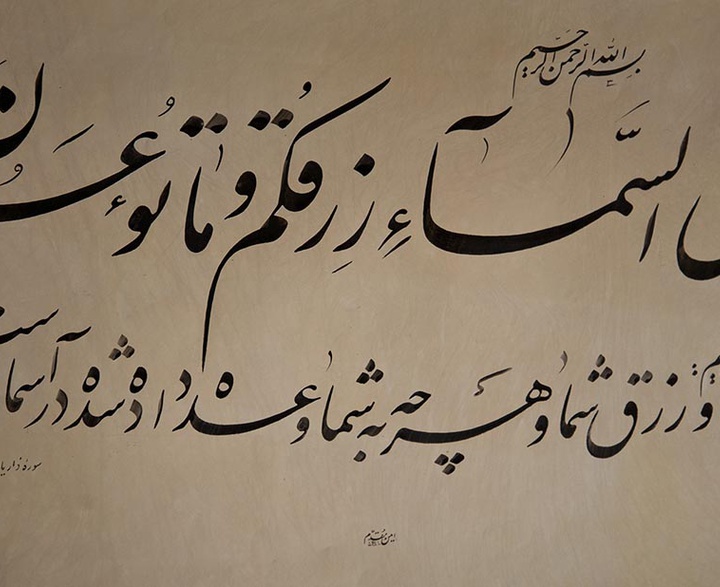 بِسْمِ اللهِ الرَّحْمٰنِ الرَّحِيمِ
السَّمآءِ رِزْقُكُمْ وَمٰا تُوعَدُ
و رزق شما و هر چه به شما وعده داده شده در آسما
سوره ذاریا